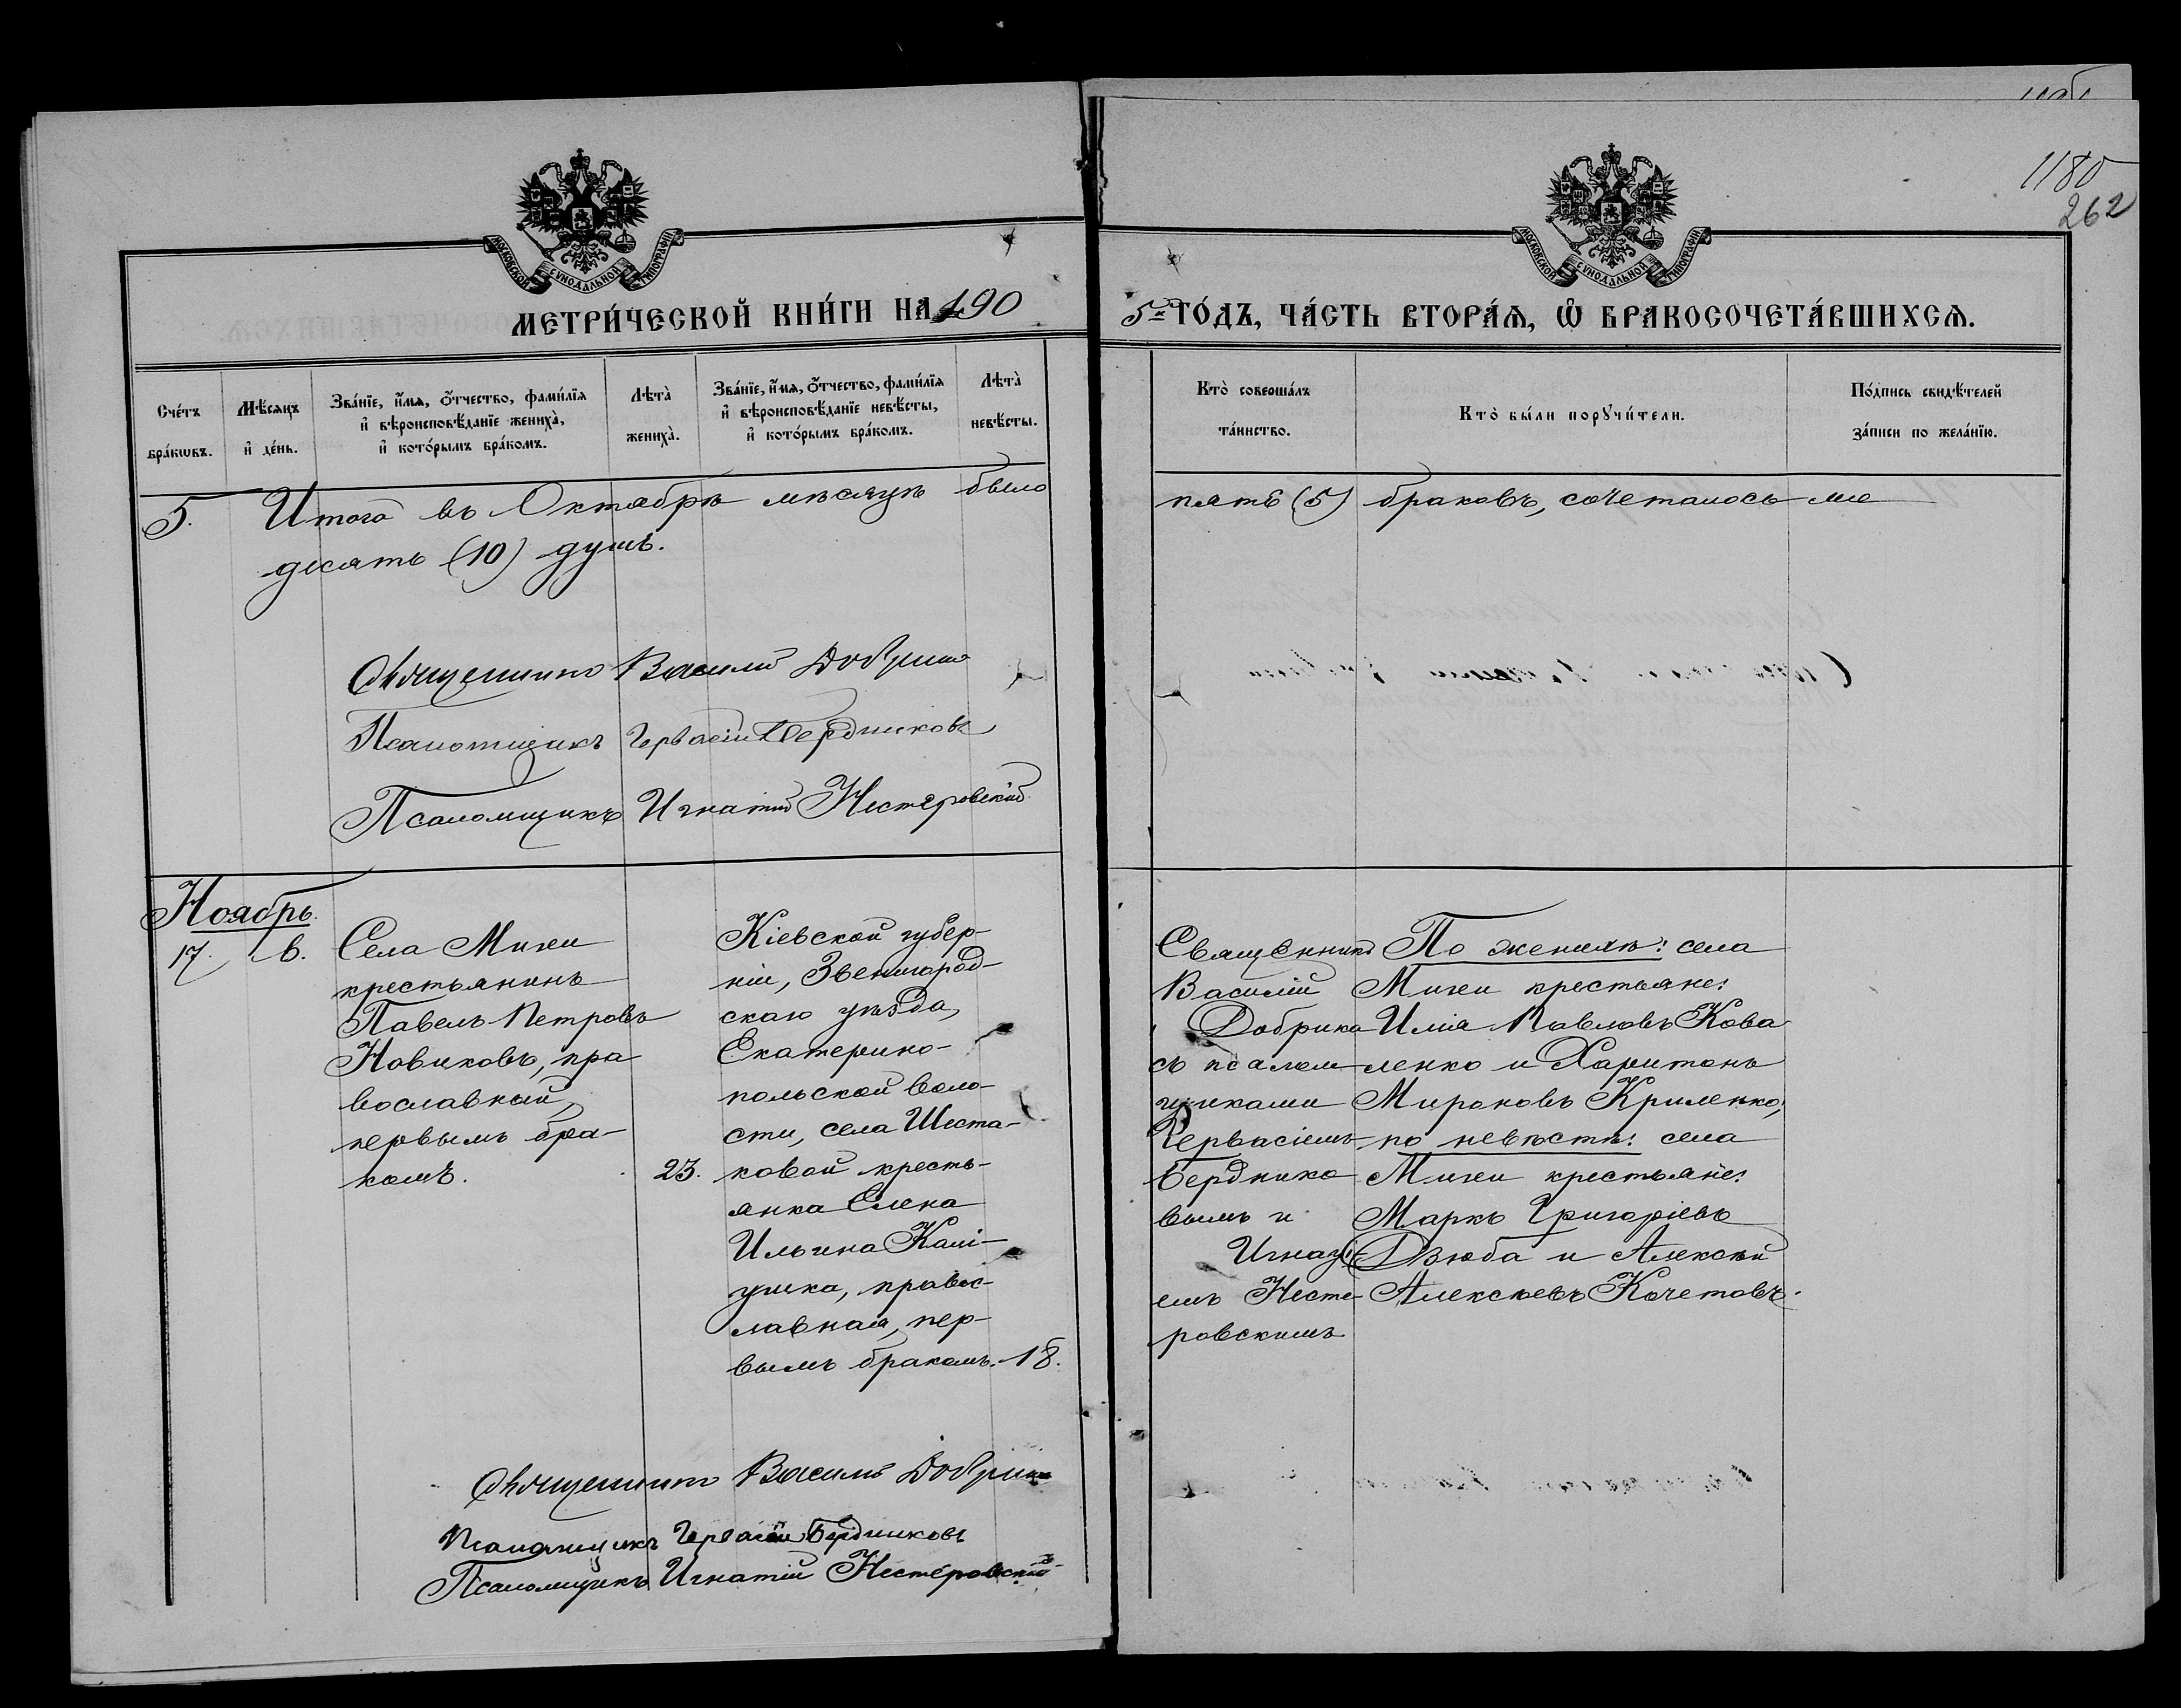 1180
262
МОСКОВСКОЙ СѴНОДАЛЬНОЙ ТИПОГРАФІИ
МОСКОВСКОЙ СѴНОДАЛЬНОЙ ТИПОГРАФІИ
МЕТРИ́ЧЕСКОЙ КНИ́ГИ НА 190
5й ГО́ДЪ, ЧА́СТЬ ВТОРА́Я, Ѡ҆ БРАКОСОЧЕТА́ВШИХСЯ.
Счéтъ бра́кѡвъ.
Мѣ́сяцъ и҆ де́нь.
Зва́нїе, и҆́мя, ѻ҆́тчество, фами́лїя и҆ вѣроисповѣ́данїе жениха̀, и҆ кото́рымъ бра́комъ.
Лѣта̀ жениха̀.
Зва́нїе, и҆́мя, ѻ҆́тчество, фами́лїя и҆ вѣроисповѣ́данїе невѣ́сты, и҆ кото́рымъ бра́комъ.
Лѣта̀ невѣ́сты.
Кто̀ соверша́лъ та́инство.
Кто̀ бы́ли порꙋчи́тели.
По́дпись свидѣ́телей за́писи по жела́нїю.
5. Итого въ Октябрѣ мѣсяцѣ было пять (5) браковъ, сочеталось
десять (10) душъ.
Священникъ Василій Добрика
Псаломщикъ Гервасій Бердниковъ
Псаломщикъ Игнатій Нестеровскій
Ноябрь.
17. 6.
Села
крестьянинъ
Павелъ Петровъ
Новиковъ, пра
вославный,
первымъ бра-
комъ.
23.
Кіевской губер-
ніи, Звенигород-
скаго уѣзда,
Екатерино-
польской воло-
сти, села Шеста-
ковой кресть-
янка Елена
Ильина Калі-
ушка, правос-
лавная, пер-
вымъ бракомъ.
18.
Священникъ
Василій
Добрика
съ псалом-
щиками
Гервасіемъ
Бердنико
вымъ и
Игнаті-
емъ Несте-
ровскимъ
По женихѣ: села
крестьяне:
Илія Павловъ Кова-
ленко и Харитонъ
Мироновъ Криленко;
по невѣстѣ: села
крестьяне:
Маркъ Григоріевъ
Дзюба и Алексѣй
Алексѣевъ Кочетовъ.
Священникъ Василій Добрика
Псаломщикъ Гервасій Бердниковъ
Псаломщикъ Игнатій Нестеровскій